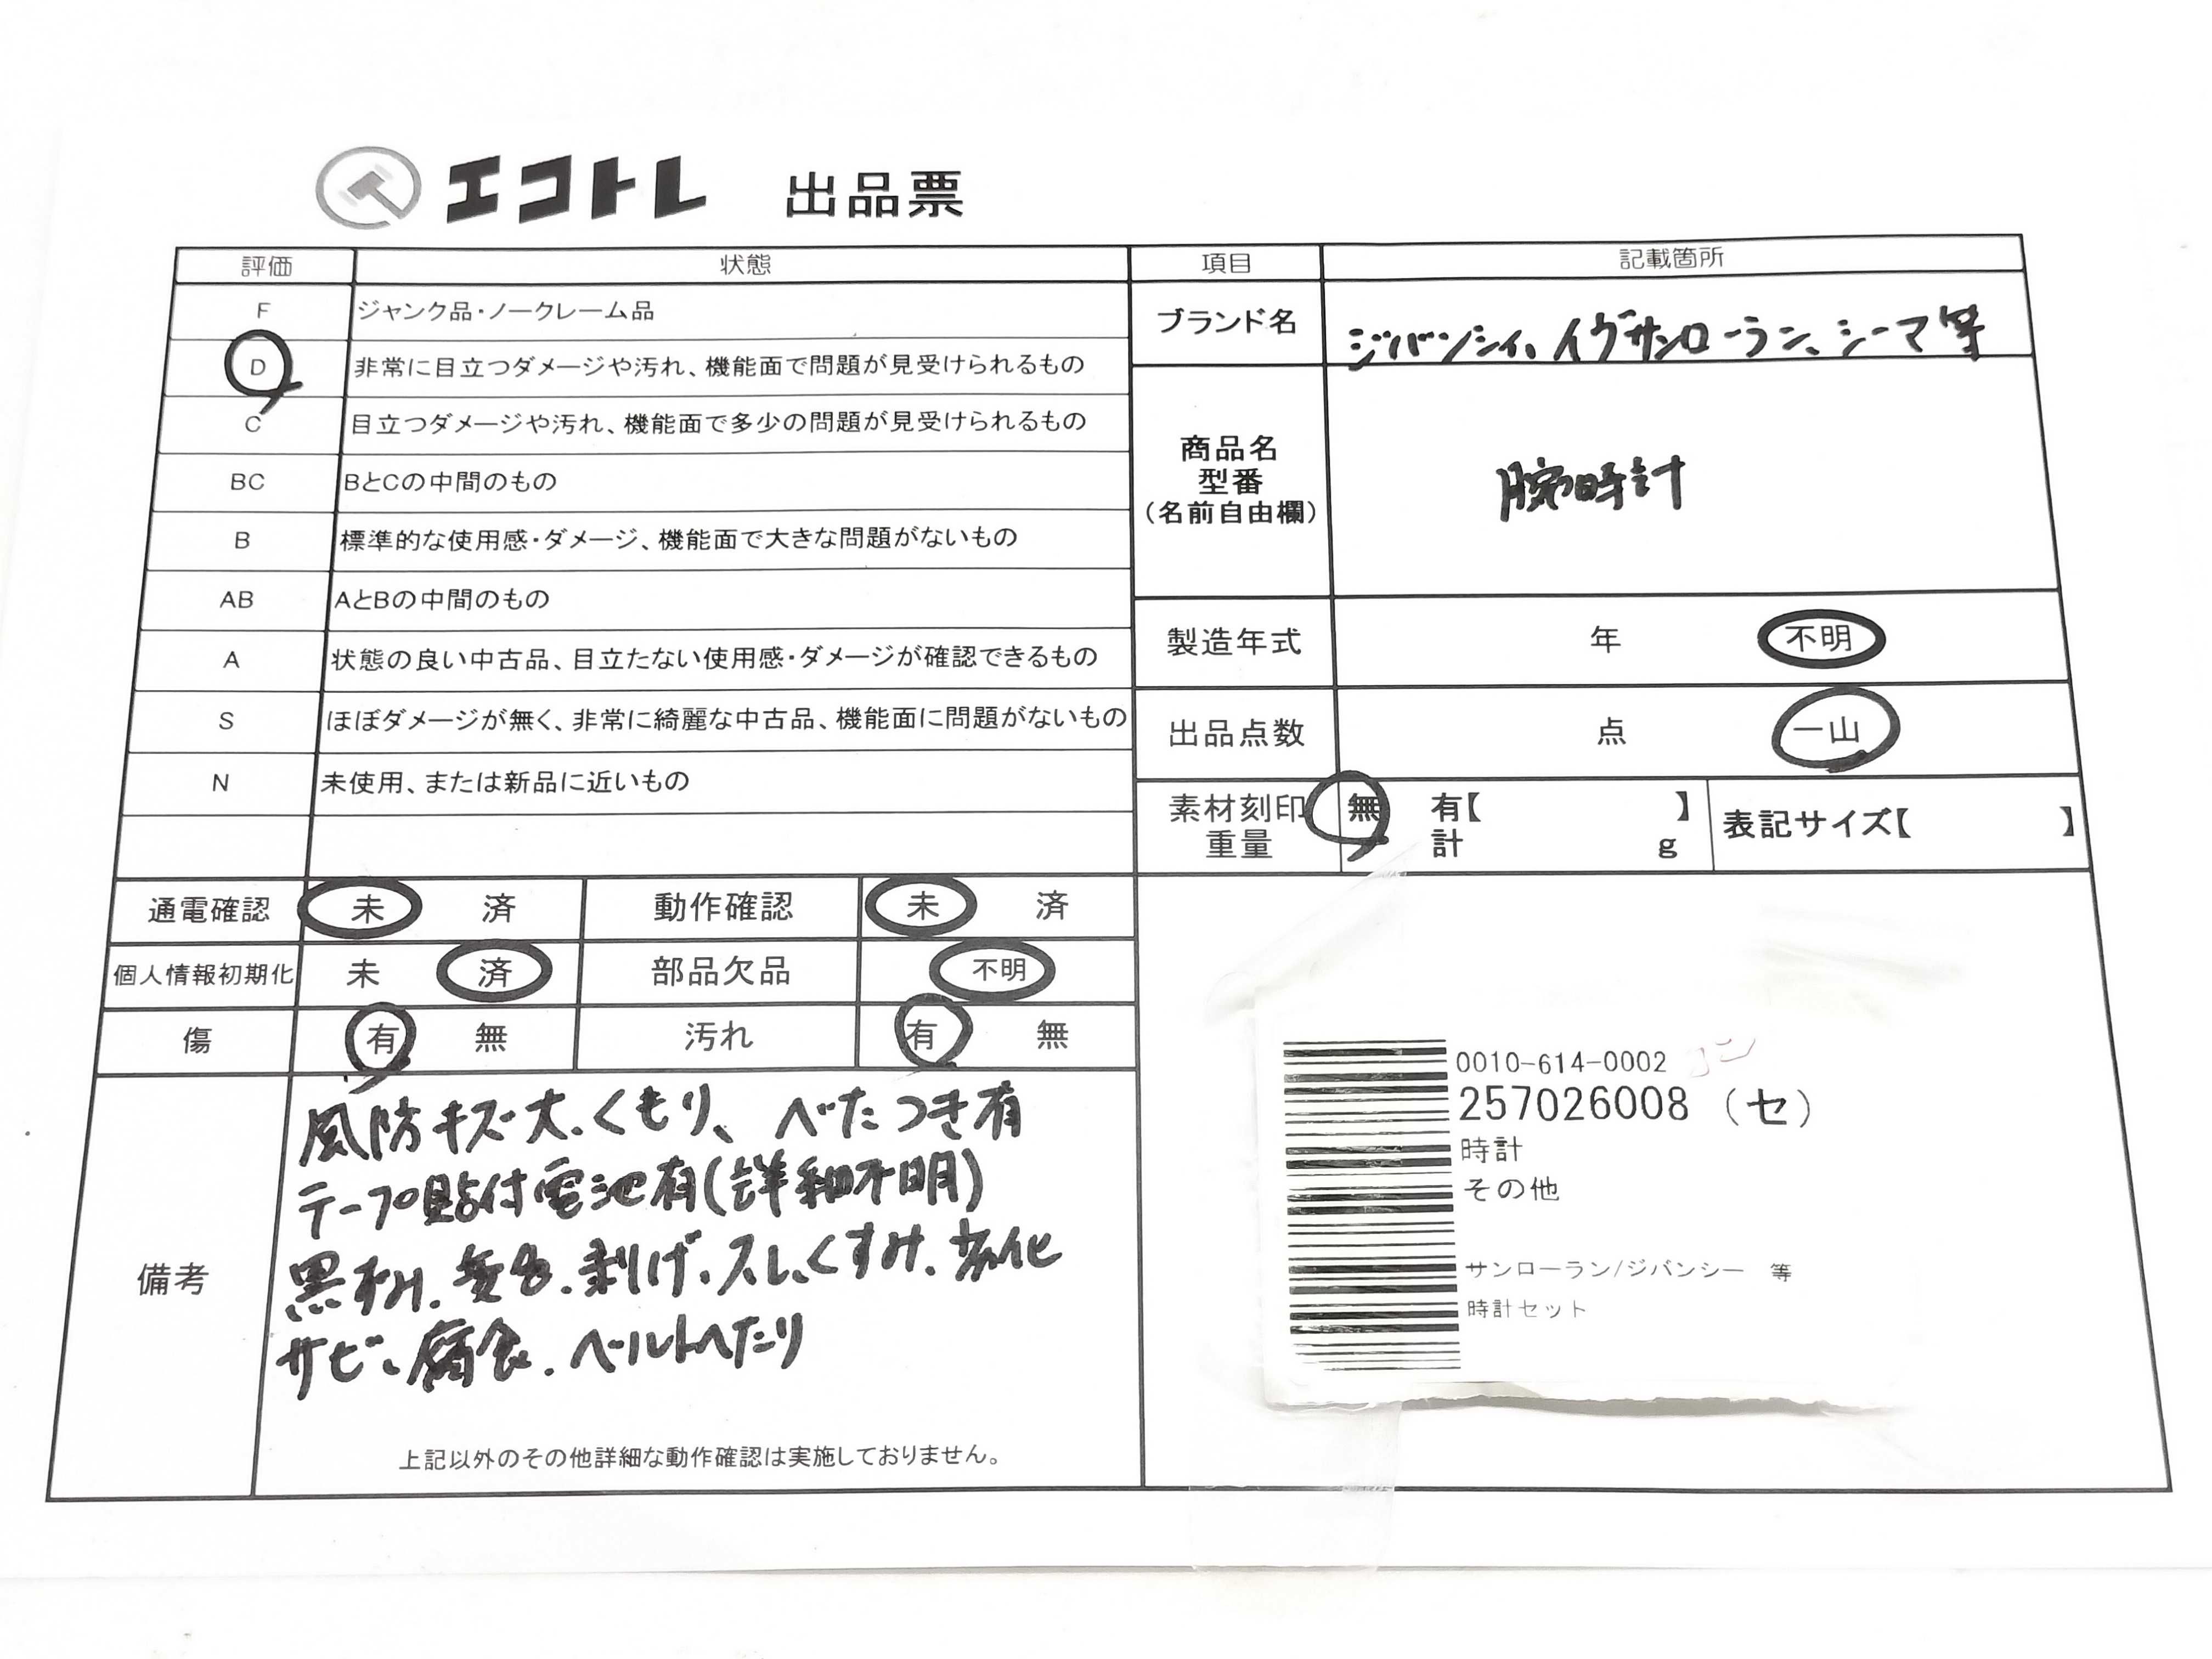 エコトレ 出品票
評価 状態
F ジャンク品・ノークレーム品
D 非常に目立つダメージや汚れ、機能面で問題が見受けられるもの
C 目立つダメージや汚れ、機能面で多少の問題が見受けられるもの
BC BとCの中間のもの
B 標準的な使用感・ダメージ、機能面で大きな問題がないもの
AB AとBの中間のもの
A 状態の良い中古品、目立たない使用感・ダメージが確認できるもの
S ほぼダメージが無く、非常に綺麗な中古品、機能面に問題がないもの
N 未使用、または新品に近いもの
通電確認 未 済 動作確認 未 済
個人情報初期化 未 済 部品欠品 不明
傷 有 無 汚れ 有 無
備考
風防キズ大、くもり、べたつき有
テープ貼付電池有(詳細不明)
黒ずみ、変色、剥げ、スレ、くすみ、劣化
サビ、腐食、ベルトへたり
上記以外のその他詳細な動作確認は実施しておりません。
項目 記載箇所
ブランド名 ジバンシィ、イヴサンローラン、シーマ等
商品名
型番
(名前自由欄)
腕時計
製造年式 年 不明
出品点数 点 一山
素材刻印 無 有【 】
重量 計 g
表記サイズ【 】
0010-614-0002
257026008 (セ)
時計
その他
サンローラン/ジバンシー 等
時計セット